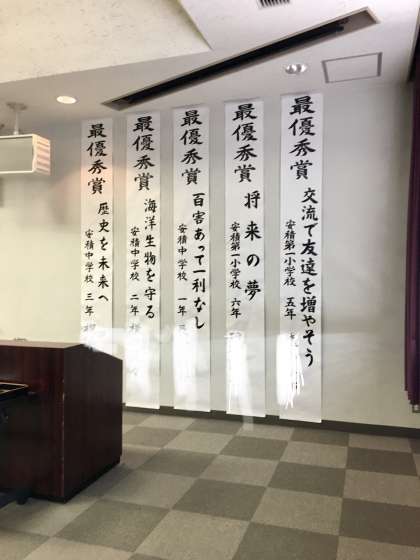 最優秀賞 交流で友達を増やそう
安積第一小学校 五年
最優秀賞 将来の夢
安積第一小学校 六年
最優秀賞 百害あって一利なし
安積中学校 一年
最優秀賞 海洋生物を守る
安積中学校 二年
最優秀賞 歴史を未来へ
安積中学校 三年